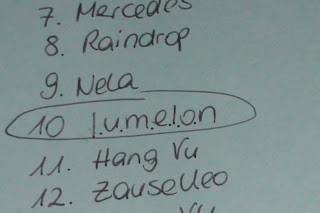 7. Mercedes
8. Raindrop
9. Nela
10 l.u.m.e.l.o.n
11. Hang Vu
12. Zauselleo